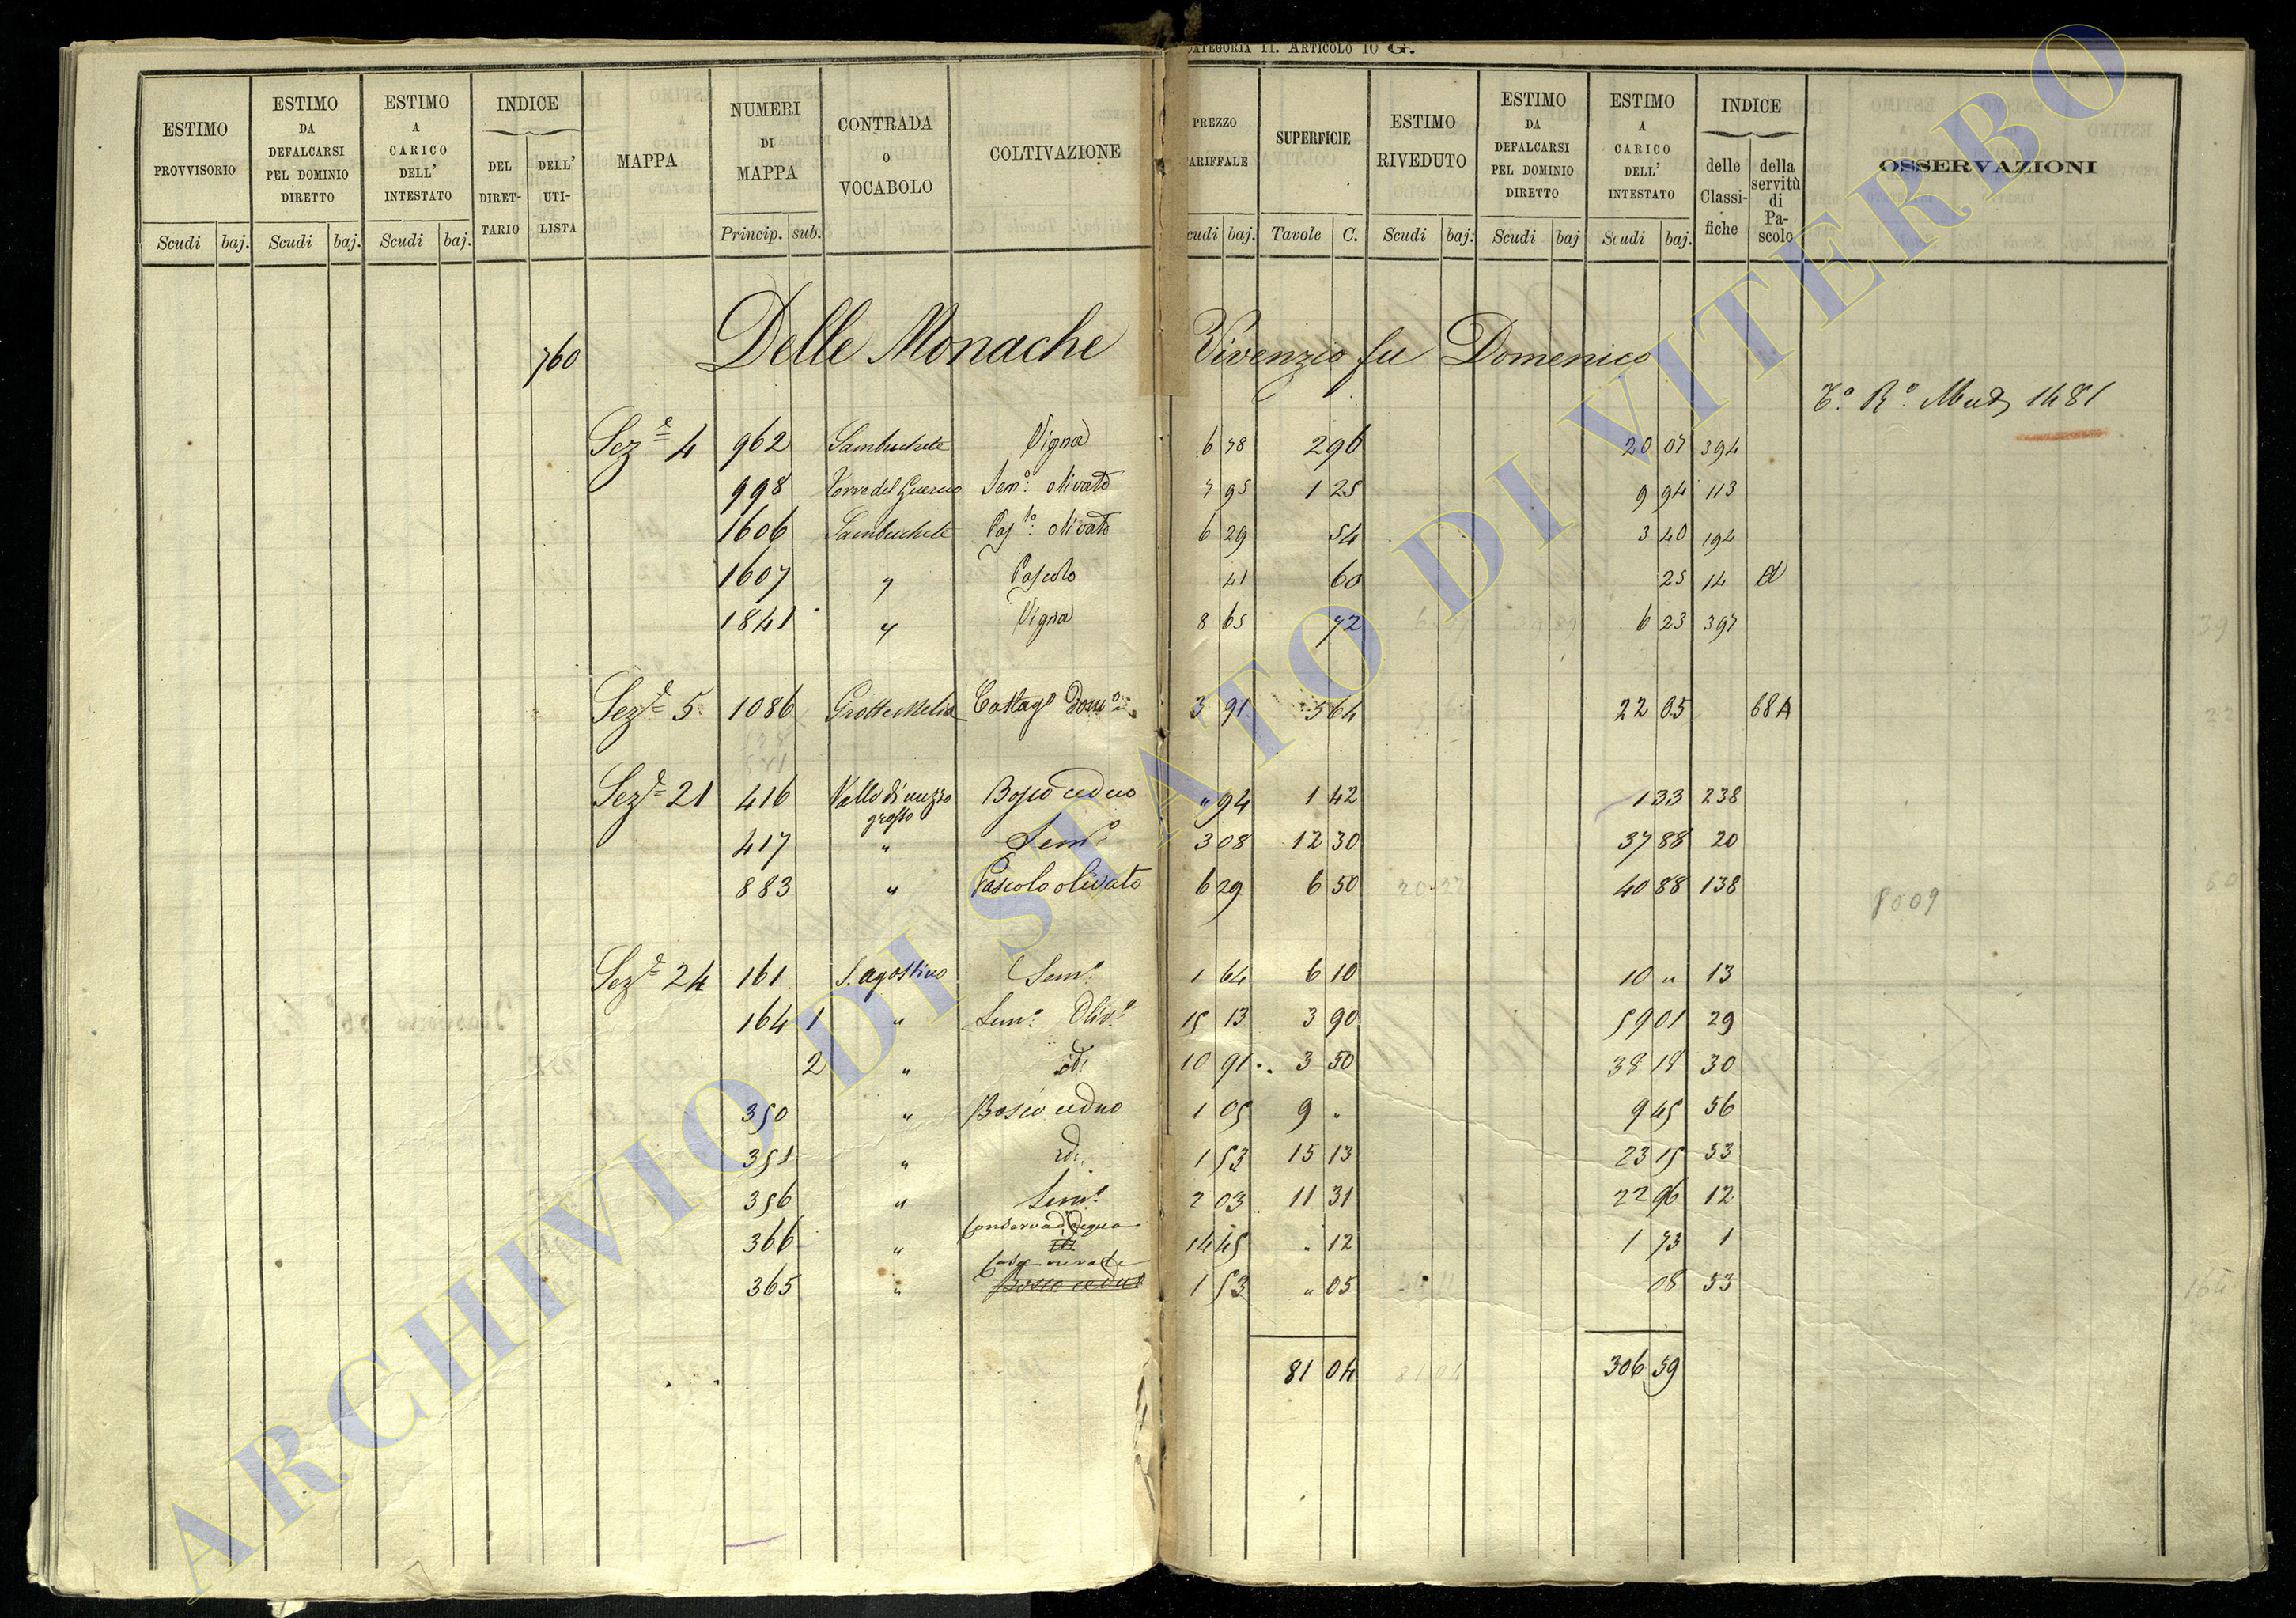 CATEGORIA II. ARTICOLO 10 G.
ESTIMO PROVVISORIO Scudi baj.
ESTIMO DA DEFALCARSI PEL DOMINIO DIRETTO Scudi baj.
ESTIMO A CARICO DELL' INTESTATO Scudi baj.
INDICE DEL DIRETTARIO DELL' UTILISTA
MAPPA
NUMERI DI MAPPA Princip. sub.
CONTRADA O VOCABOLO
COLTIVAZIONE
PREZZO TARIFFALE Scudi baj.
SUPERFICIE Tavole C.
ESTIMO RIVEDUTO Scudi baj.
ESTIMO DA DEFALCARSI PEL DOMINIO DIRETTO Scudi baj
ESTIMO A CARICO DELL' INTESTATO Scudi baj.
INDICE delle Classifiche della servitù di Pascolo
OSSERVAZIONI
760 Delle Monache Vivenzio fu Domenico
Tº Rº Mod 1481
Sezᵉ 4 962 Sambuchete Vigna 6 78 2 96 20 07 394
998 Torre del Guercio Semº olivato 7 95 1 25 9 94 113
1606 Sambuchete Pasᵗº olivato 6 29 54 3 40 194
1607 " Pascolo 41 60 25 14 A
1841 " Vigna 8 65 72 6 23 397
Sezᵉ 5 1086 Grotte Melia Castagº domº 3 91 5 64 22 05 68 A
Sezᵉ 21 416 Valle di nuzzo grosso Bosco ceduo " 94 1 42 1 33 238
417 " Semº 3 08 12 30 37 88 20
883 " Pascolo olivato 6 29 6 50 20 22 40 88 138
8009
Sezᵉ 24 161 S. Agostino Semº 1 64 6 10 10 " 13
164 1 " Semº Olivº 15 13 3 90 59 01 29
2 " id. 10 91 3 50 38 18 30
350 " Bosco ceduo 1 05 9 " 9 45 56
351 " id. 1 53 15 13 23 15 53
356 " Semº 2 03 11 31 22 96 12
366 " Conserva d'acqua 14 45 " 12 1 73 1
365 " Casa rurale Bosco ceduo 1 53 " 05 08 53
81 04 81 04 306 59
ARCHIVIO DI STATO DI VITERBO